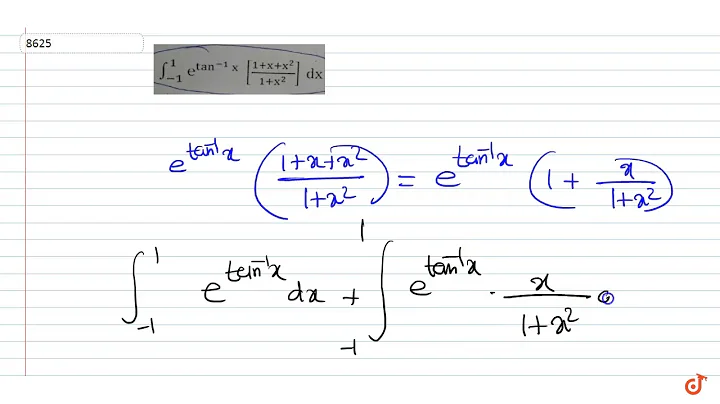 8625
∫₋₁¹ e^(tan⁻¹ x) [(1+x+x²)/(1+x²)] dx
e^(tan⁻¹x) ((1+x+x²)/(1+x²)) = e^(tan⁻¹x) (1 + x/(1+x²))
∫₋₁¹ e^(tan⁻¹x) dx + ∫₋₁¹ e^(tan⁻¹x) · x/(1+x²)